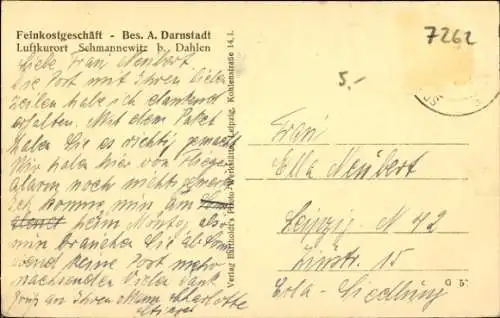 Feinkostgeschäft - Bes. A. Darnstadt
Luftkurort Schmannewitz b. Dahlen
Liebe Frau Neubert.
Die Post mit Ihren lieben
Zeilen habe ich dankend
erhalten. Mit dem Paket
haben Sie es richtig gemacht
Wir haben hier von
alarm noch nichts
Ich komme nun am
beim Montag also
nun brauchen Sie ab
keine Post mehr
nachsenden Vielen Dank
Gruß an Ihren Mann Charlotte
Verlag Barthold's Photo-Werkstätte, Leipzig, Kohlenstraße 14, I.
7262
5,-
Frau
Ella Neubert
Leipzig N 42
15
Erla-Siedlung
G 5